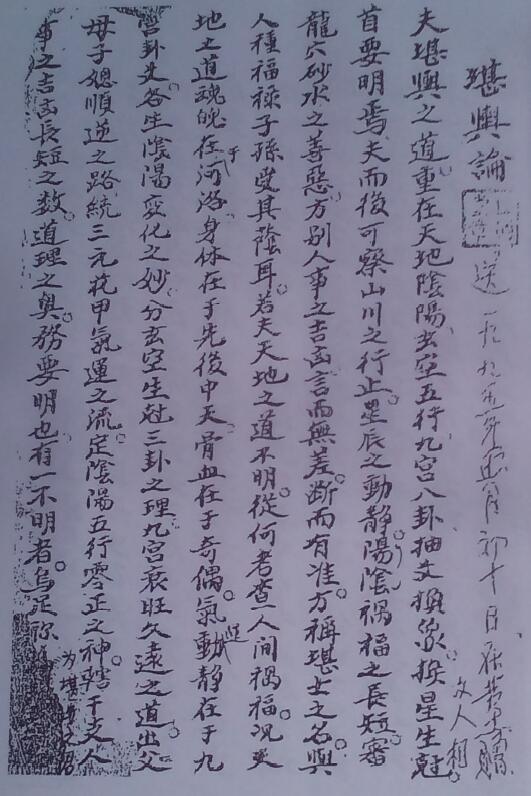 堪輿論
一九九五年正月初十日
夫堪輿之道重在天地陰陽玄空五行九宮八卦抽爻換象挨星生尅。
首要明焉夫而後可察山川之行止。星辰之動靜。陽陰禍福之長短。審
龍穴砂水之善惡。方別人事之吉凶言而無差。斷而有准。方稱堪士之名。與
人種福祿子孫受其蔭耳。若夫天地之道不明。從何考查人間禍福。况天
地之道魂魄在于河洛。身体在于先後中天。骨血在于奇偶。氣運動靜在于九
宮卦爻各生陰陽变化之妙。分玄空生尅三卦之理。九宮衰旺久遠之道。出父
母子媳順逆之路。統三元花甲氣運之流。定陰陽五行零正之神。轄干支人
事之吉凶長短之数。道理之奧。務要明也。有一不明者。烏足称